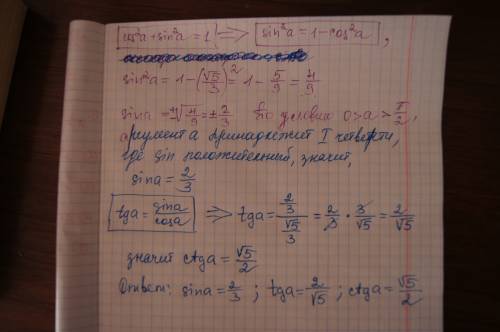 cos²a + sin²a = 1 ⇒ sin²a = 1 - cos²a,
sin²a = 1 - (√5/3)² = 1 - 5/9 = 4/9
sin a = ±√4/9 = ±2/3 По условию 0 > a > π/2,
аргумент a принадлежит I четверти,
где sin положительный, значит,
sin a = 2/3
tg a = sin a/cos a ⇒ tg a = 2/3/√5/3 = 2/3 · 3/√5 = 2/√5
значит ctg a = √5/2
Ответ: sin a = 2/3; tg a = 2/√5; ctg a = √5/2